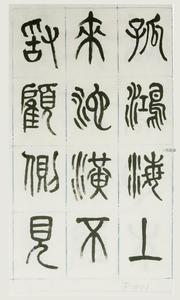 孤鴻海上
來池潢不
敢顧側見